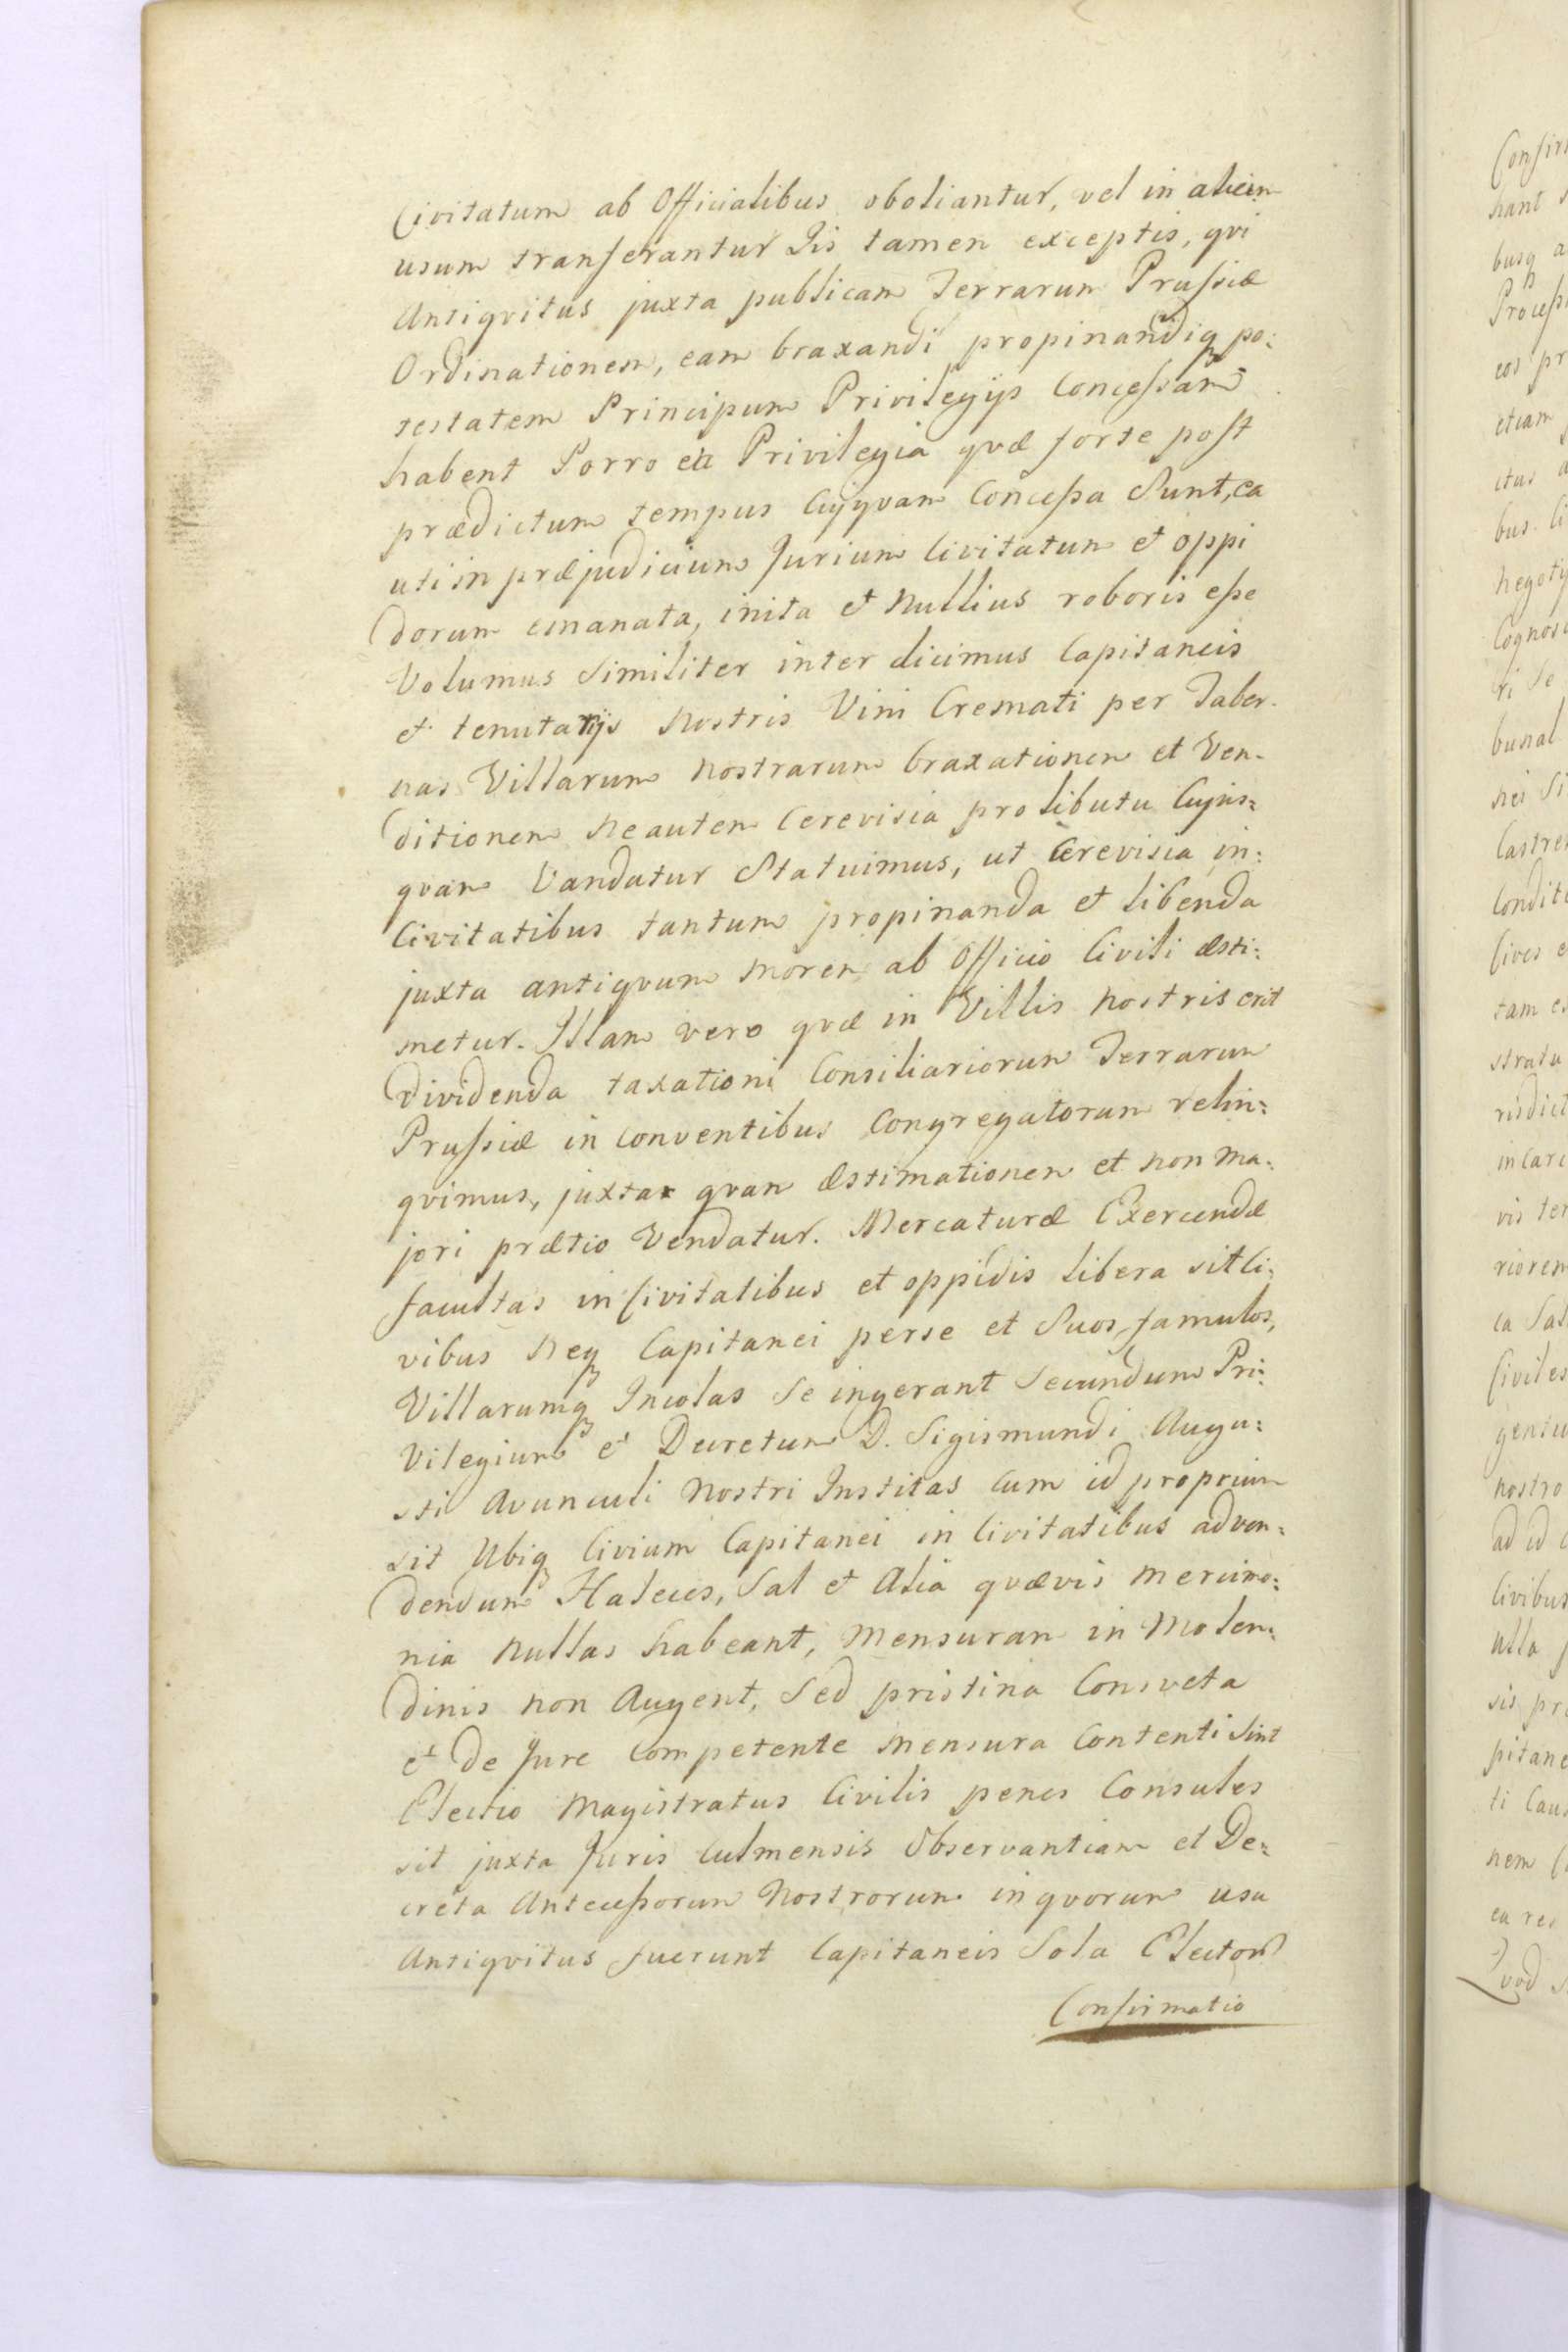 Civitatum ab Officialibus oboliantur, vel in alium
usum transferantur Iis tamen exceptis, qvi
Antiqvitus juxta publicam Terrarum Prussiæ
Ordinationem, eam braxandi propinandiq po:
testatem Principum Privilegijs Concessam
habent Porro et Privilegia qvæ forte post
prædictum tempus Cujqvam Concessa Sunt, ea
uti in præjudicium Jurium Civitatum et oppi
dorum emanata, inita et Nullius roboris esse
Volumus Similiter inter dicimus Capitaneis
et tenutarijs Nostris Vini Cremati per Taber-
nas Villarum Nostrarum braxationem et Ven-
ditionem Ne autem Cerevisia pro libutu Cujus=
qvam Vandatur Statuimus, ut Cerevisia in:
Civitatibus tantum propinanda et libenda
juxta antiqvum morem ab Officio Civili æsti:
metur. Illam vero qvæ in Villis Nostris erit
dividenda taxationi Consiliariorum Terrarum
Prussiæ in Conventibus Congregatorum relin=
qvimus, juxta qvam æstimationem et non ma:
jori prætio Vendatur. Mercaturæ Exercendæ
facultas in Civitatibus et oppidis libera sit Ci:
vibus Neq Capitanei perse et Suos famulos,
Villarumq Incolas Se ingerant Secundum Pri:
Vilegium et Decretum D. Sigismundi Augu:
sti Avunculi Nostri Institas cum id proprium
sit Ubiq Civium Capitanei in Civitatibus adven:
dendum Haleces, Sal et Alia qvævis mercimo:
nia Nullas habeant, Mensuram in Molen:
dinis non Augent, Sed pristina Consveta
et De Jure Competente mensura Contenti Sint
Electio Magistratus Civilis penes Consules
sit juxta Juris Culmensis Observantiam et De:
creta Antecessorum Nostrorum in qvorum usu
Antiqvitus fuerunt Capitaneis Sola Electorum
Confirmatio